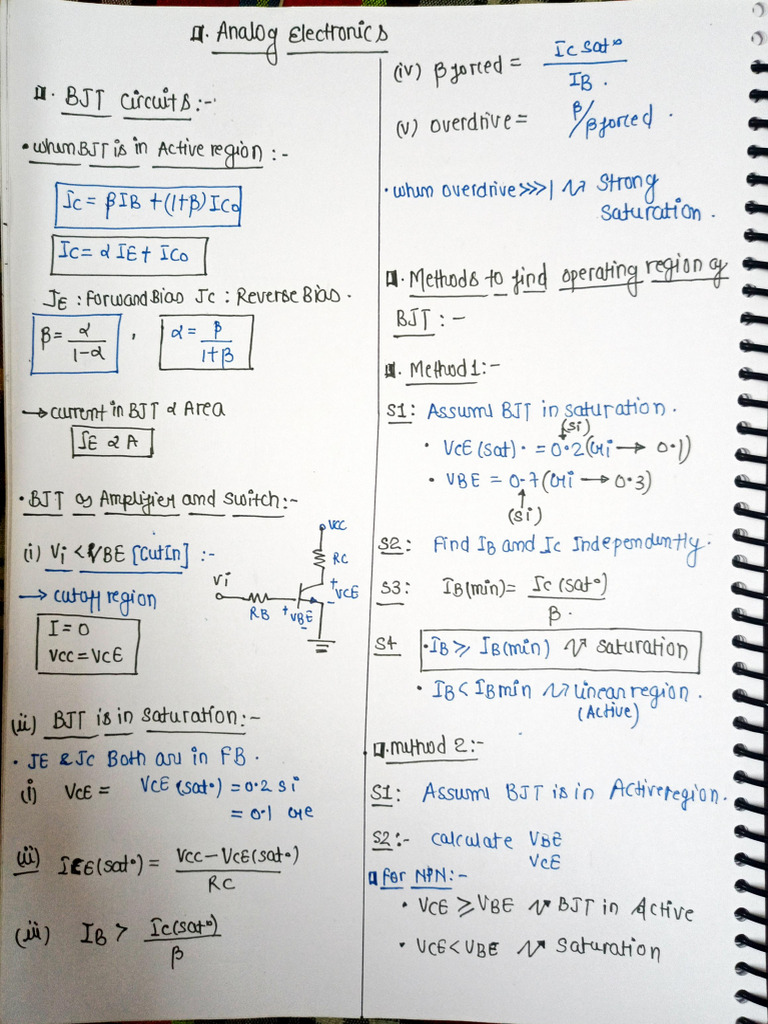 Analog Electronics
BJT Circuits :-
• when BJT is in Active region :-
Ic = βIB + (1+β)Ico
Ic = αIE + Ico
JE : Forward Bias Jc : Reverse Bias .
β = α/1-α , α = β/1+β
→ current in BJT α Area
IE α A
• BJT as Amplifier and switch :-
(i) Vi < VBE [CutIn] :-
→ cutoff region
I = 0
Vcc = VCE
Vi
RB
+ VBE -
Vcc
RC
+ VCE -
(ii) BJT is in Saturation :-
• JE & Jc Both are in FB .
(i) VCE = VCE (sat.) = 0.2 Si
= 0.1 Ge
(ii) ICE(sat.) = Vcc - VCE(sat.) / RC
(iii) IB > Ic(sat.) / β
(iv) β forced = Ic sat. / IB .
(v) overdrive = β/β forced .
• when overdrive >>>1 Strong
Saturation .
Methods to find operating region of
BJT : -
Method 1 :-
S1 : Assume BJT in saturation .
(Si)
• VCE (sat) . = 0.2 (Ge → 0.1)
• VBE = 0.7 (Ge → 0.3)
(Si)
S2 : Find IB and Ic Independently .
S3 : IB(min) = Ic (sat.) / β .
S4 • IB ≥ IB(min) Saturation
• IB < IBmin linear region .
(Active)
method 2 :-
S1 : Assume BJT is in Active region .
S2 :- calculate VBE
VCE
for NPN :-
• VCE ≥ VBE BJT in Active
• VCE < VBE Saturation